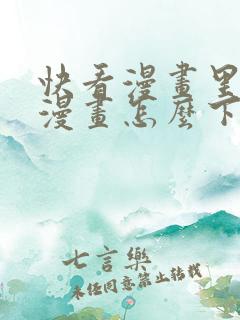 快看漫畫里
漫畫怎麼下
七言樂
未經同意禁止轉載